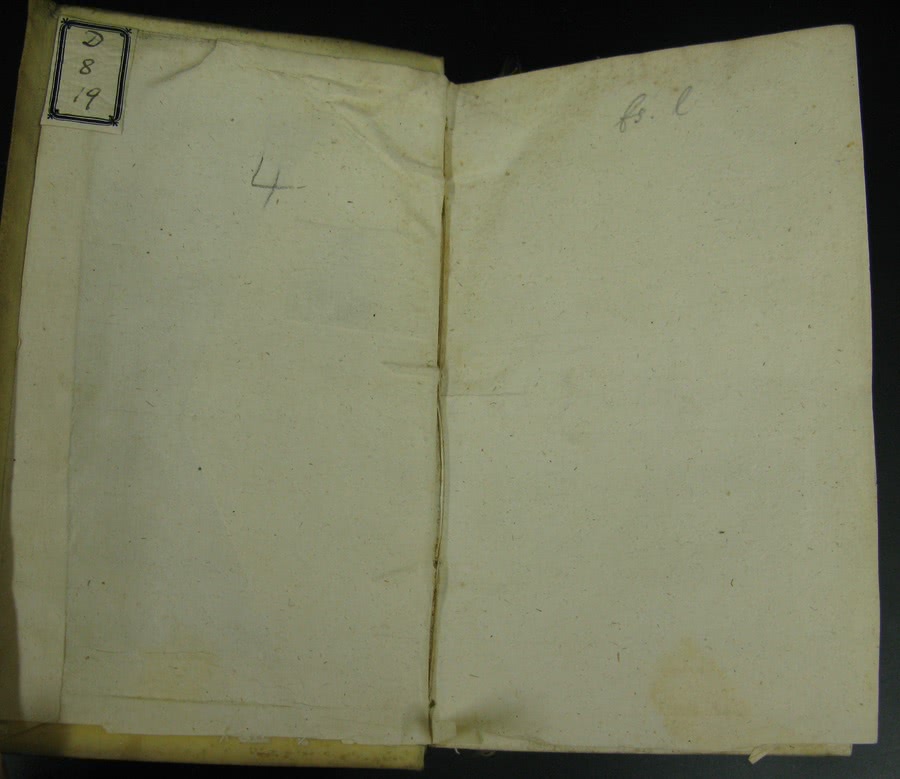 D
8
19
4.
fs. l